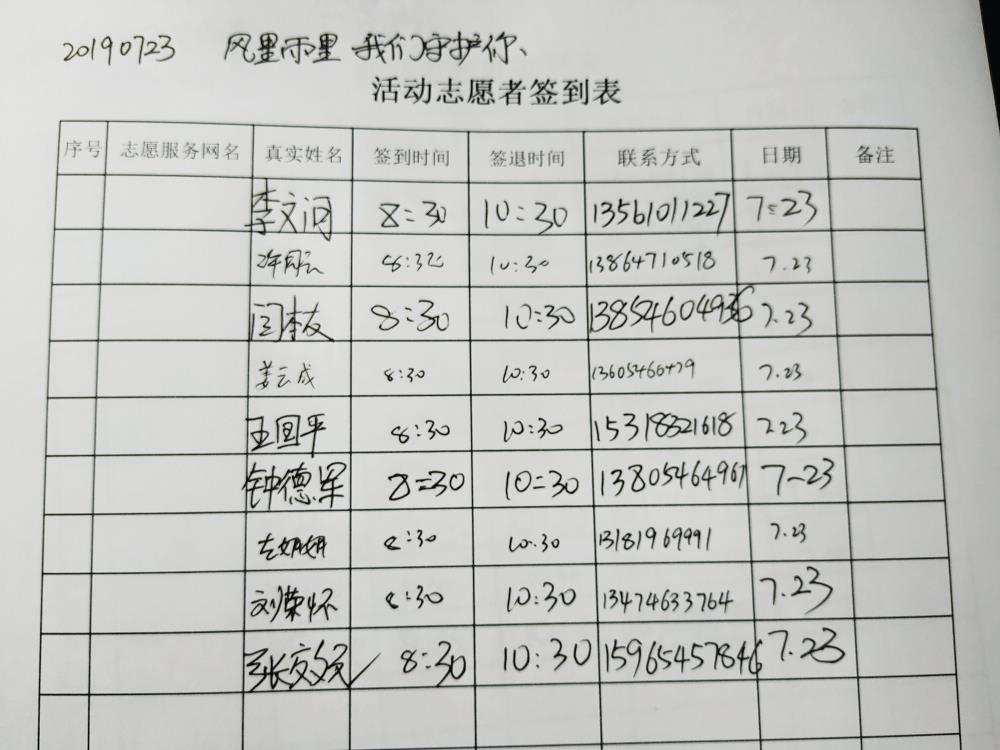 20190723 风里雨里 我们守护你、
活动志愿者签到表
序号 志愿服务网名 真实姓名 签到时间 签退时间 联系方式 日期 备注
李文 8:30 10:30 13561011227 7:23
8:30 10:30 13864710518 7.23
闫本友 8:30 10:30 13854604936 7.23
姜云成 8:30 10:30 7.23
王国平 8:30 10:30 15318321618 7.23
钟德军 8=30 10=30 13805464967 7-23
左妍妍 8:30 10:30 13181969991 7.23
刘荣怀 8:30 10:30 13474633764 7.23
张 8:30 10:30 15965457846 7.23